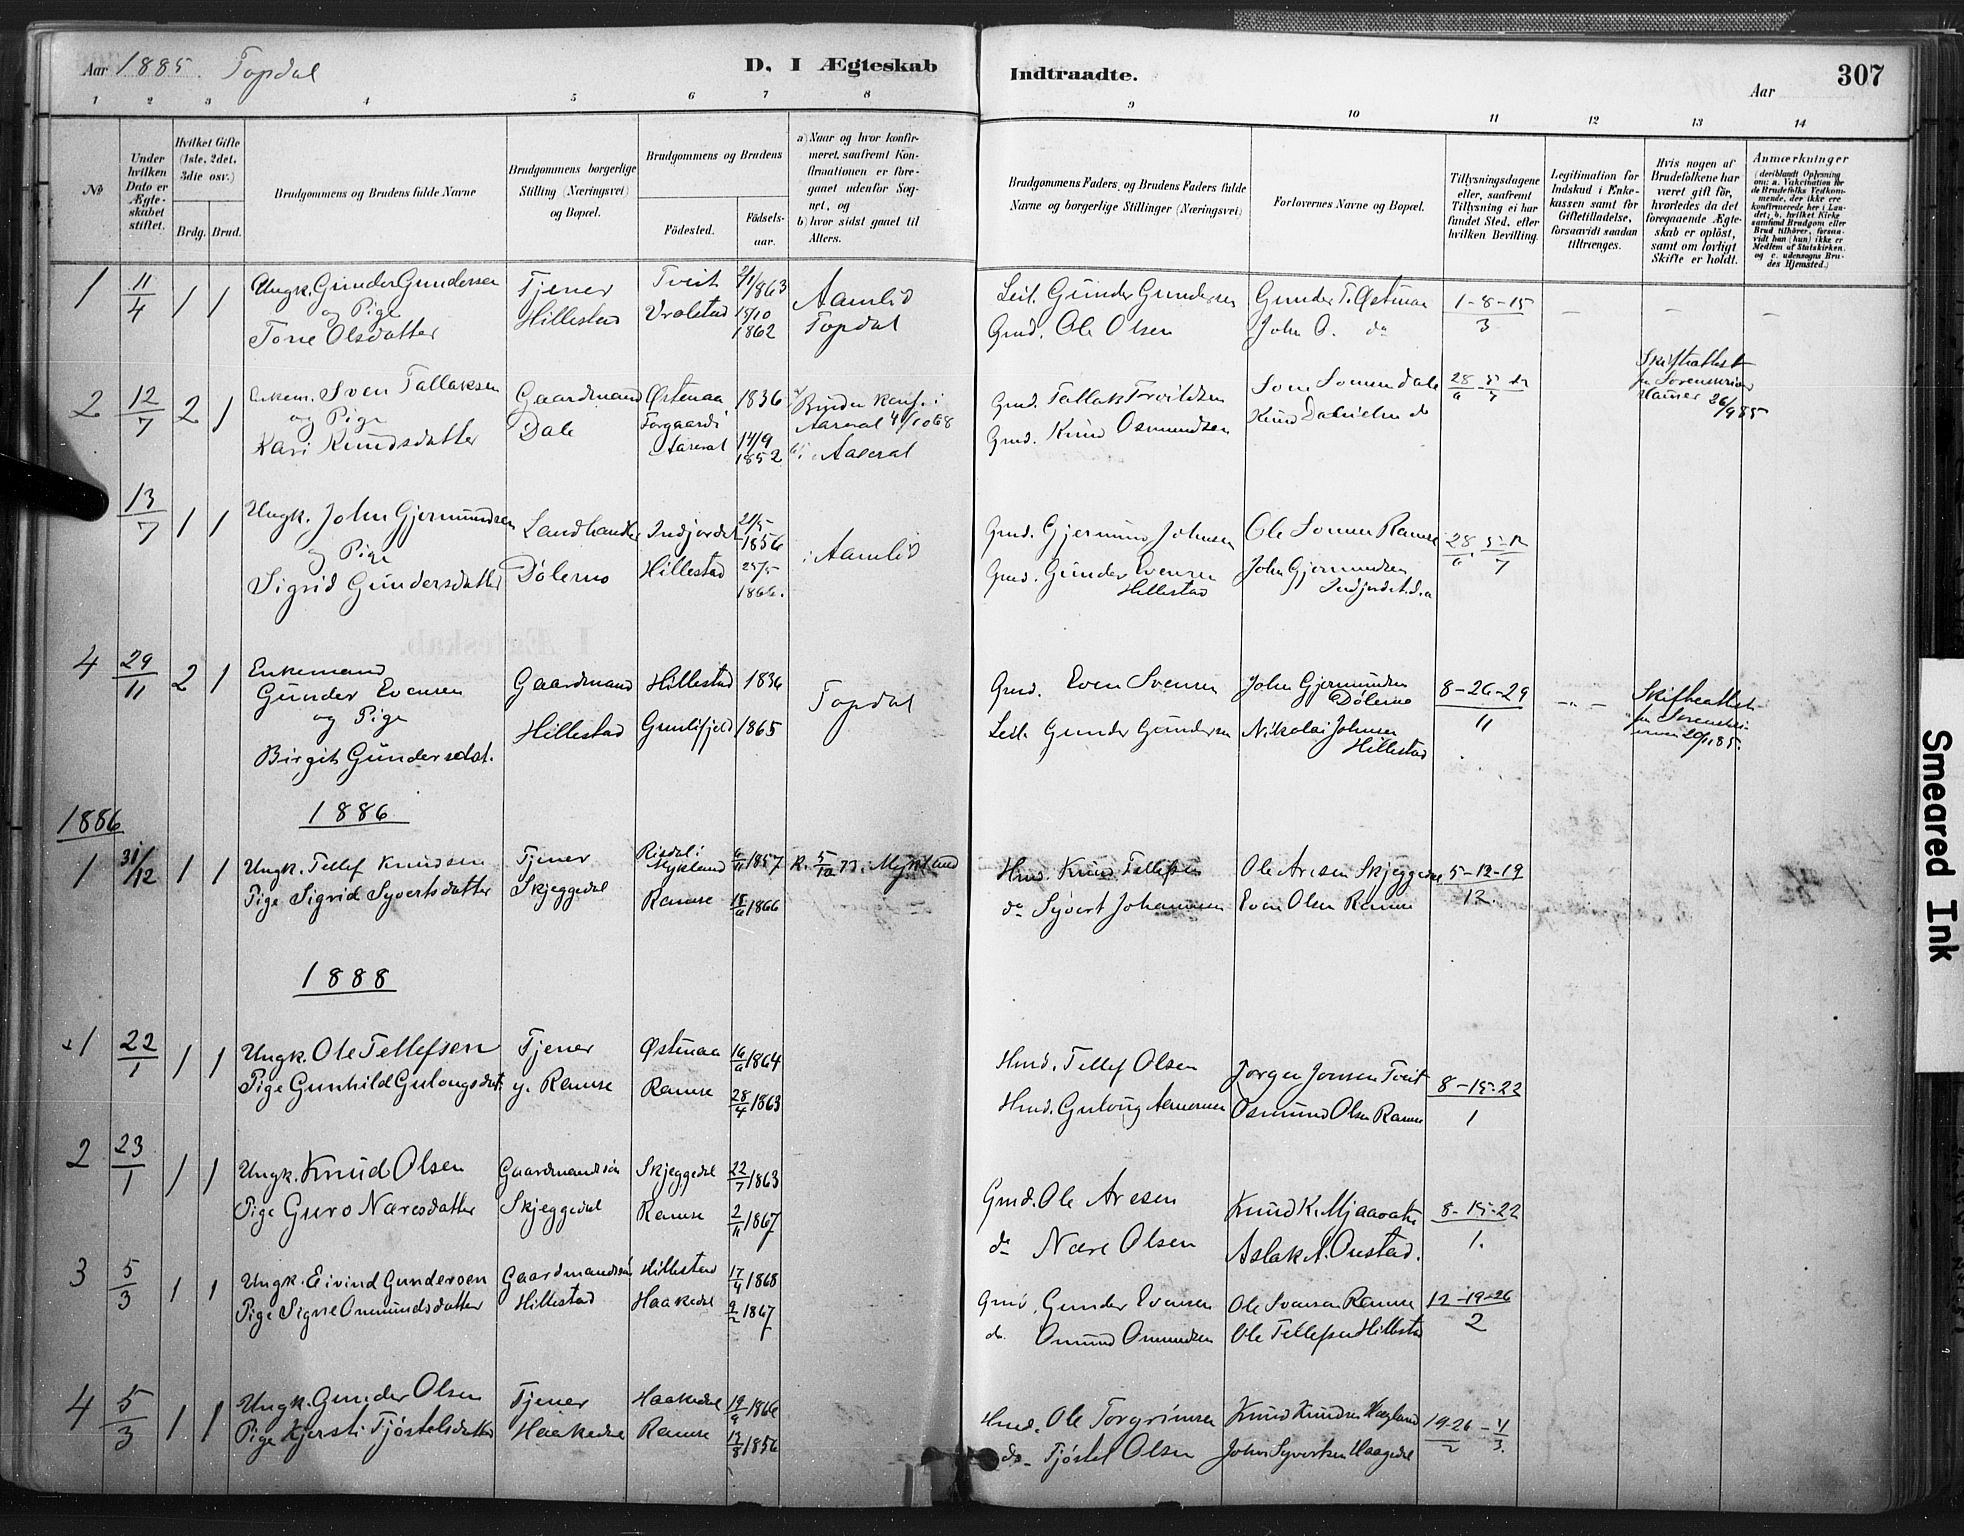 Aar 1885. Topdal
D. I Ægteskab
Indtraadte.
Aar
307
1 2 3 4 5 6 7 8 9 10 11 12 13 14
No
Under hvilken Dato er Ægteskabet stiftet.
Hvilket Gifte (1ste, 2det, 3die osv.)
Brdg. Brud.
Brudgommens og Brudens fulde Navne
Brudgommens borgerlige Stilling (Næringsvei) og Bopæl.
Brudgommens og Brudens
Fødested.
Fødselsaar.
a) Naar og hvor konfirmeret, saafremt Konfirmationen er foregaaet udenfor Sognet, og
b) hvor sidst gaaet til Alters.
Brudgommens Faders, og Brudens Faders fulde Navne og borgerlige Stillinger (Næringsvei)
Forlovernes Navne og Bopæl.
Tillysningsdagene eller, saafremt Tillysning ei har fundet Sted, efter hvilken Bevilling.
Legitimation for Indskud i Enkekassen samt for Giftetilladelse, forsaavidt saadan tiltrænges.
Hvis nogen af Brudefolkene har været gift før, hvorledes da det foregaaende Ægteskab er opløst, samt om lovligt Skifte er holdt.
Anmærkninger
(deriblandt Oplysning om: a. Vakcination for de Brudefolks Vedkommende, der ikke ere konfirmerede her i Landet; b. hvilket Kirkesamfund Brudgom eller Brud tilhører, forsaavidt han (hun) ikke er Medlem af Statskirken, og c. udensogns Brudes Hjemsted.)
1 11/4 1 1 Ungk. Gunder Gundersen Tjener Tveit 2/1 1863 Aamlid Leil. Gunder Gundersen Gunder T. Østenaa 1-8-15
og Pige
Torre Olsdatter Hillestad Vrolstad 13/10 1862 Topdal Gmd. Ole Olsen John O. do 3
2 12/7 2 1 Enkem. Sven Tallaksen Gaardmand Østenaa 1836 Gmd. Tallak 28/6
og Pige
Kari Knudsdatter Dale 14/9 1852 Aaseral Gmd. Knud Osmundsen 26/9 85
13/7 1 1 Ungk. John Gjermundsen Landhandler 21/5 1856 Aamlid Gmd. Gjermund Johnsen Ole Ramse 28/6 5-12/7
og Pige
Sigrid Gundersdatter Dølemo Hillestad 1866. Gmd. Gunder Evensen John Gjermundsen
Hillestad
4 29/11 2 1 Enkemand
Gunder Evensen Gaardmand Hillestad 1836 Topdal Gmd. Even Svensen John Gjermundsen 8-26-29
Dølemo 11
og Pige Hillestad 1865 Leil. Gunder Gundersen Nikolai Johnsen
Hillestad
Birgit Gundersdat.
1886 1886
1 31/12 1 1 Ungk. Tellef Knudsen Tjener Risdal i Mykland 1857 Mykland Hmd. Knud Tellefsen Ole Aresen Skjeggedal 5-12-19
Pige Sigrid Syvertsdatter Skjeggedal Ramse 1866 do Syvert Johannesen Even Olsen Ramse 12.
1888
1 22/1 1 1 Ungk. Ole Tellefsen Tjener Østenaa 16/6 1864 Hmd. Tellef Olsen Jørgen Jonsen Tveit 8-15-22
Pige Gunhild Gulougsdat. y. Ramse Ramse 28/4 1863 Hmd. Guloug Osmund Olsen Ramse 1
2 23/1 1 1 Ungk. Knud Olsen Gaardmandssøn Skjeggedal 22/7 1863 Gmd. Ole Aresen Knud K. Mjaavatn 8-15-22
Pige Guro Næresdatter Skjeggedal Ramse 2/11 1867 do Nære Olsen Aslak A. Onstad. 1.
3 5/3 1 1 Ungk. Eivind Gundersen Gaardmandssøn Hillestad 17/4 1868 Gmd. Gunder Evensen Ole Svensen Ramse 12-19-26
Pige Signe Omundsdatter Hillestad Haakedal 9/2 1867 do. Omund Omundsen Ole Tellefsen Hillestad 2
4 5/3 1 1 Ungk. Gunder Olsen Tjener Haakedal 19/9 1866 Hmd. Ole Torgrimsen Knud Knudsen Hægland 19-26/2 - 4/3.
Pige Kjersti Tjøstelsdatter Haakedal Ramse 13/8 1856 do- Tjøstel Olsen John Syvertsen Haagedal
Smeared Ink